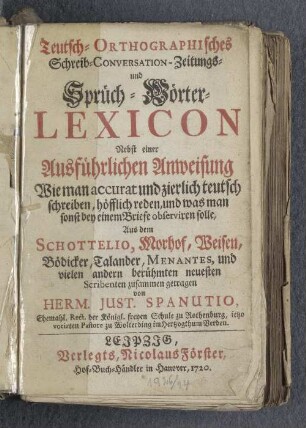 Teutsch-ORTHOGRAPHIsches
Schreib-CONVERSATION-Zeitungs-
und
Sprüch-Wörter-
LEXICON
Nebst einer
Ausführlichen Anweisung
Wie man accurat und zierlich teutsch
schreiben, höfflich reden, und was man
sonst bey einem Briefe observiren solle,
Aus dem
SCHOTTELIO, Morhof, Weisen,
Bödicker, Talander, MENANTES, und
vielen andern berühmten neuesten
Scribenten zusammen getragen
von
HERM. JUST. SPANUTIO,
Ehemahl. Rect. der Königl. freyen Schule zu Rothenburg, ietzo
Pastore zu Wolterding im Hertzogthum Verden.
LEIPZIG,
Verlegts, Nicolaus Förster,
Hof-Buch-Händler in Hanover, 1720.